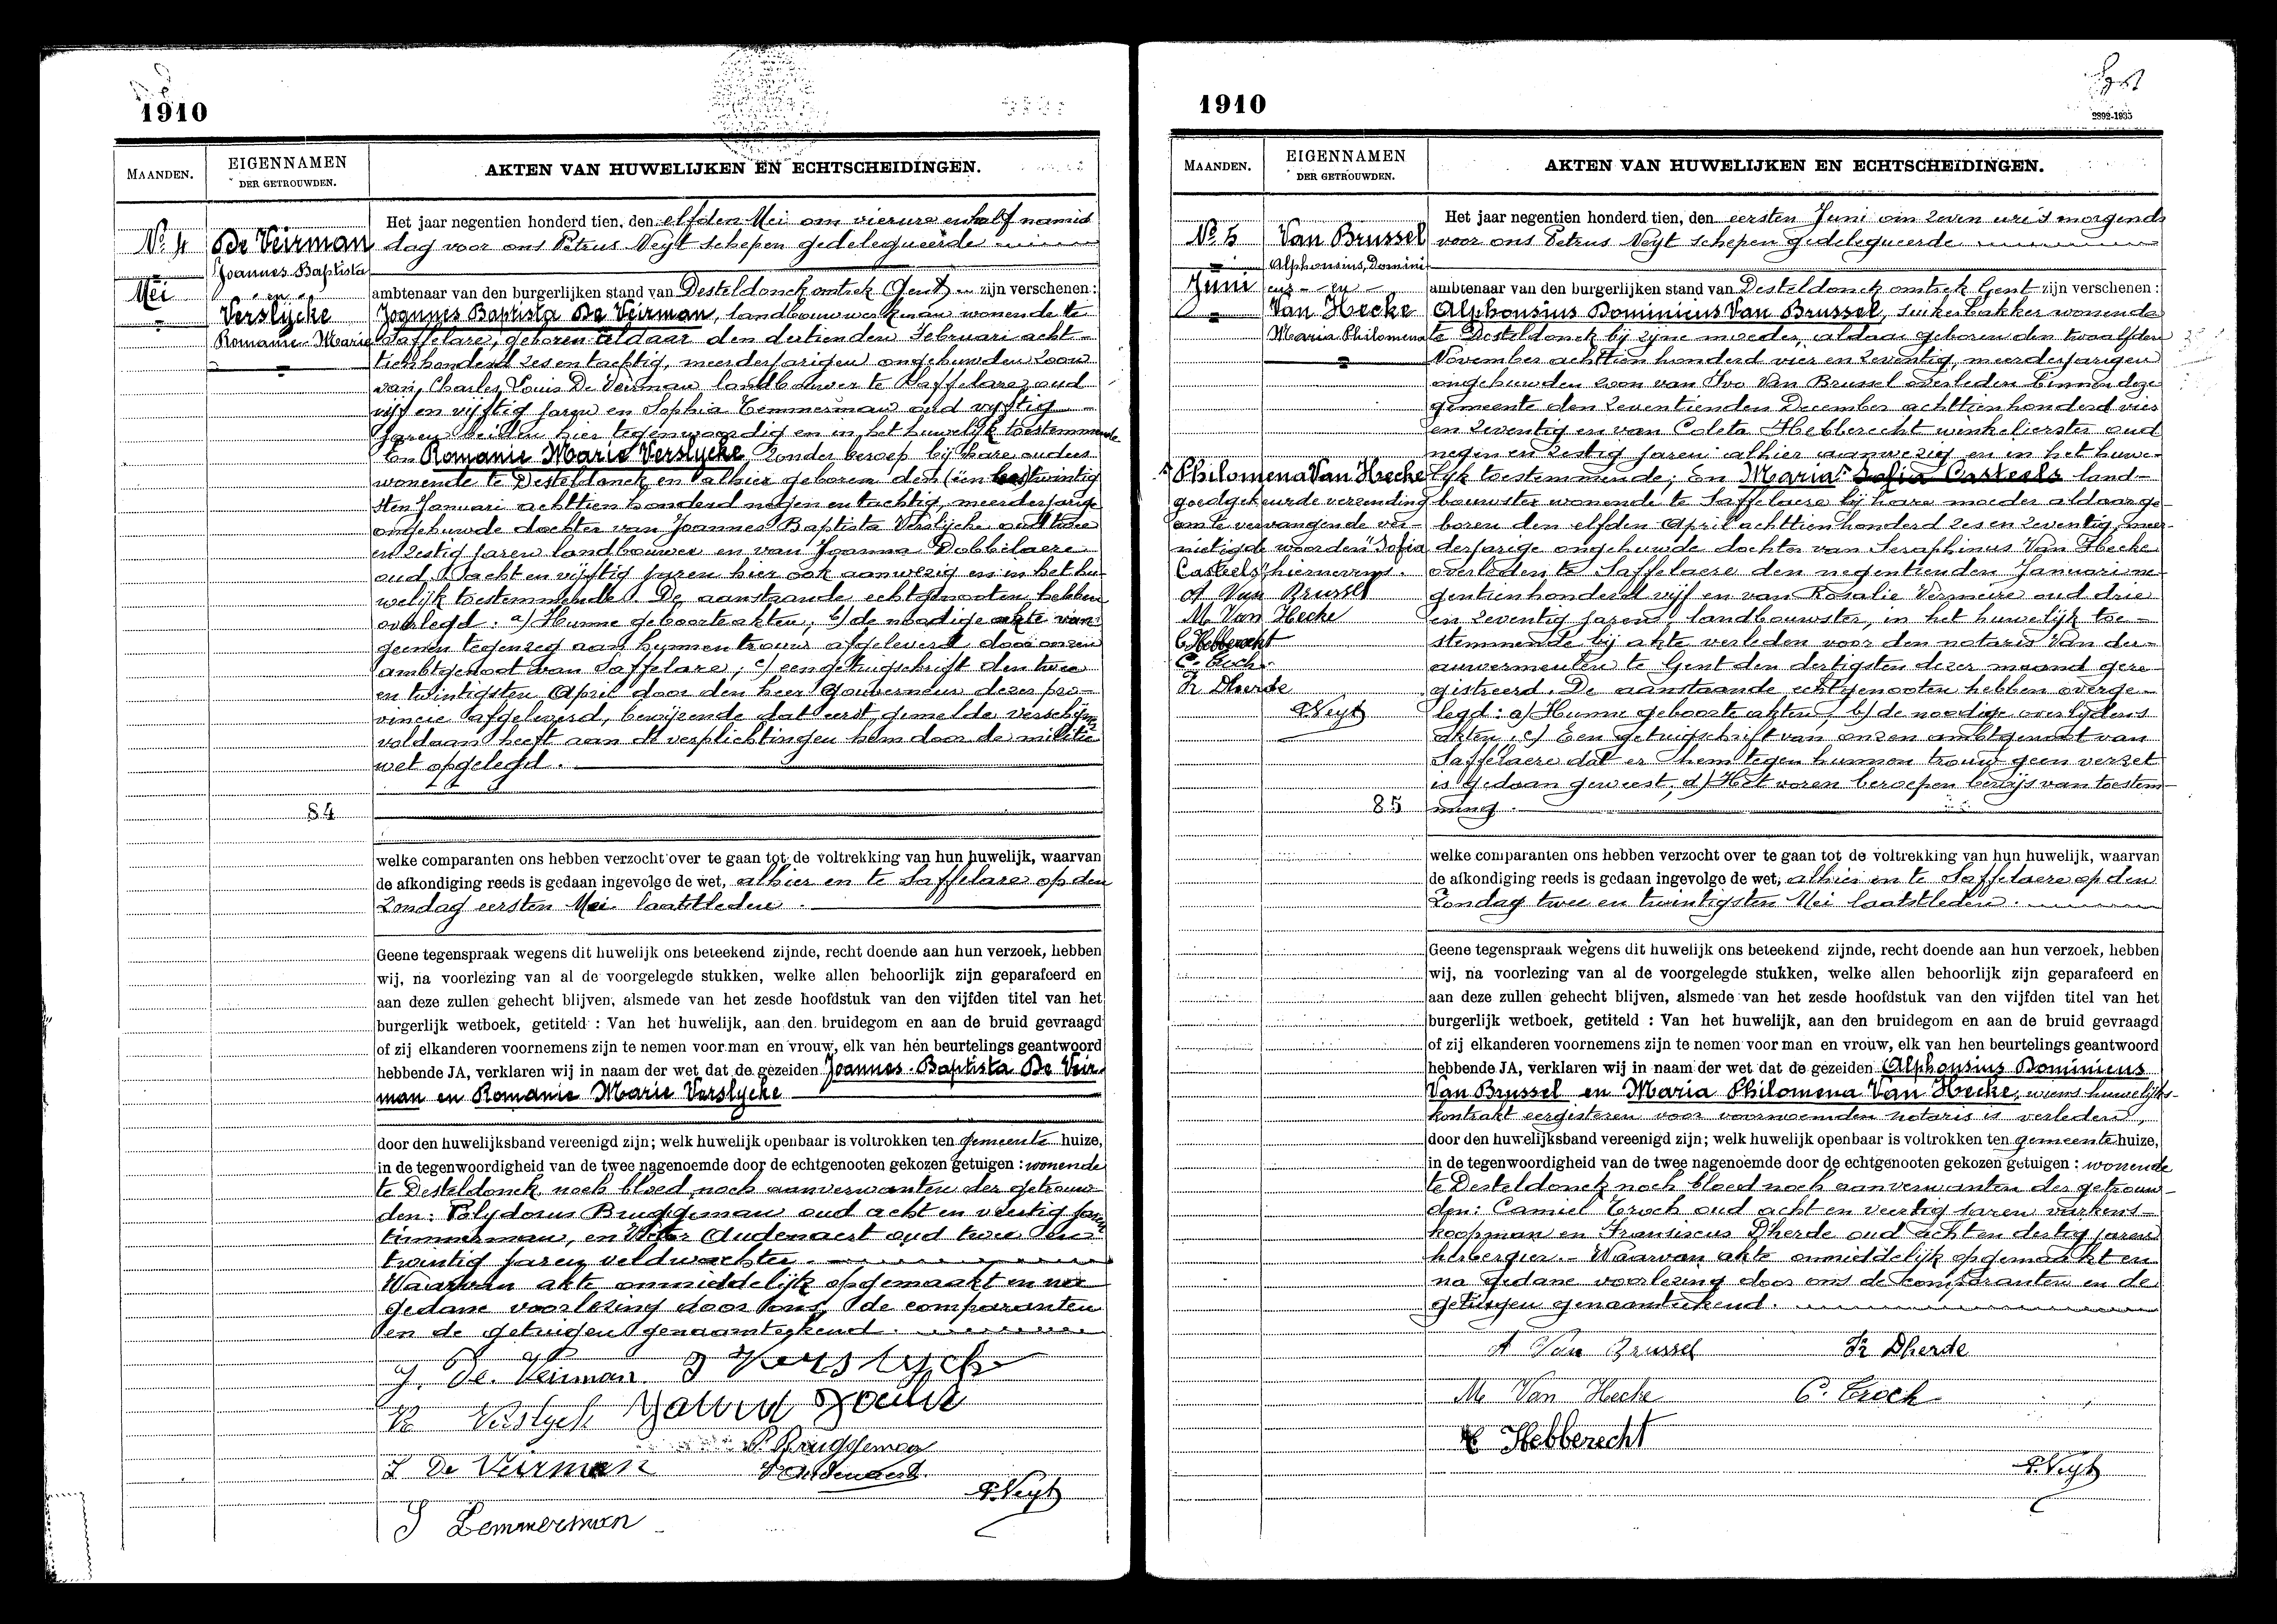 1910
MAANDEN.
EIGENNAMEN
DER GETROUWDEN.
AKTEN VAN HUWELIJKEN EN ECHTSCHEIDINGEN.
No 4
Mei
De Veirman
Joannes Baptista
en
Verslycke
Romanie Marie
84
Het jaar negentien honderd tien, den elfden Mei om vierure enhalf namid
dag voor ons Petrus Neyt schepen gedelegueerde
ambtenaar van den burgerlijken stand van Desteldonck omtrek Gent zijn verschenen :
Joannes Baptista De Veirman, landbouwwerkman wonende te
Saffelare, geboren aldaar den dertienden Februari acht-
tienhonderd zes en tachtig, meerderjarigen ongehuwden zoon
van, Charles Louis De Veirman landbouwer te Saffelare, oud
vijf en vijftig jaren en Sophia Temmerman oud vyftig
jaren beiden hier tegenwoordig en in het huwelijk toestemmende
En Romanie Marie Verslycke, zonder beroep bij hare ouders
wonende te Desteldonck en alhier geboren den één twintig
sten Januari achttien honderd negen en tachtig, meerderjarige
ongehuwde dochter van Joannes Baptista Verslycke oud twee
en zestig jaren landbouwer en van Joanna Dobbelaere
oud acht en vijftig jaren hier ook aanwezig en in het hu-
welijk toestemmende. De aanstaande echtgenooten hebben
overlegd : a) Hunne geboorteakten, b) de noodige akte van
geenen tegenzeg aan hunnen trouw afgeleverd door onzen
ambtgenoot van Saffelare ; c) een getuigschrift den twee
en twintigsten April door den heer Gouverneur dezer pro-
vincie afgeleverd, bewijzende dat eerst gemelde verschijner
voldaan heeft aan de verplichtingen hem door de militie
wet opgelegd.
welke comparanten ons hebben verzocht over te gaan tot de voltrekking van hun huwelijk, waarvan
de afkondiging reeds is gedaan ingevolge de wet, alhier en te Saffelare op den
Zondag eersten Mei laatstleden.
Geene tegenspraak wegens dit huwelijk ons beteekend zijnde, recht doende aan hun verzoek, hebben
wij, na voorlezing van al de voorgelegde stukken, welke allen behoorlijk zijn geparafeerd en
aan deze zullen gehecht blijven, alsmede van het zesde hoofdstuk van den vijfden titel van het
burgerlijk wetboek, getiteld : Van het huwelijk, aan den bruidegom en aan de bruid gevraagd
of zij elkanderen voornemens zijn te nemen voor man en vrouw, elk van hen beurtelings geantwoord
hebbende JA, verklaren wij in naam der wet dat de gezeiden Joannes-Baptista De Veir-
man en Romanie Marie Verslycke
door den huwelijksband vereenigd zijn; welk huwelijk openbaar is voltrokken ten gemeente huize,
in de tegenwoordigheid van de twee nagenoemde door de echtgenooten gekozen getuigen : wonende
te Desteldonck noch bloed noch aanverwanten der getrouw-
den: Polydorus Bruggeman oud acht en veertig jaren
timmerman, en Audenaert oud twee en
twintig jaren veldwachter.
Waarvan akte onmiddelijk opgemaakt en na
gedane voorlezing door ons, de comparanten
en de getuigen genaamteekend.
J. De Veirman J Verslycke
R Verslycke
P. Bruggeman
De Veirman Audenaert
P. Neyt
S Temmerman
1910
2892-1935
MAANDEN.
EIGENNAMEN
DER GETROUWDEN.
AKTEN VAN HUWELIJKEN EN ECHTSCHEIDINGEN.
No 5
Juni
Van Brussel
Alphonsius, Domini
cus - en -
Van Hecke
Maria Philomena
Philomena Van Hecke
goedgekeurde verzending
om te vervangen de ver-
nietigde woorden "Sofia
Casteels" hiernevens.
A Van Brussel
M Van Hecke
C Hebberecht
C. Troch
Fr Dherde
P. Neyt
85
Het jaar negentien honderd tien, den eersten Juni om zeven ure 's morgends
voor ons Petrus Neyt schepen gedelegueerde
ambtenaar van den burgerlijken stand van Desteldonck omtrek Gent zijn verschenen :
Alphonsius Dominicus Van Brussel, suikerbakker wonende
te Desteldonck bij zijne moeder, aldaar geboren den twaalfden
November achttien honderd vier en zeventig, meerderjarigen
ongehuwden zoon van Ivo Van Brussel overleden binnen deze
gemeente den zeventienden December achttienhonderd vier
en zeventig en van Coleta Hebberecht winkelierster oud
negen en zestig jaren alhier aanwezig en in het huwe-
lyk toestemmende; En Maria Sofia Casteels land-
bouwster wonende te Saffelaere bij hare moeder aldaar ge-
boren den elfden April achttienhonderd zes en zeventig, meer-
derjarige ongehuwde dochter van Seraphinus Van Hecke
overleden te Saffelaere den negentienden Januari ne-
gentienhonderd vijf en van Rosalie Vermeire oud drie
en zeventig jaren landbouwster, in het huwelijk toe-
stemmende bij akte verleden voor den notaris Van der-
auwermeulen te Gent den dertigsten dezer maand gere-
gistreerd. De aanstaande echtgenooten hebben overge-
legd : a) Hunne geboorte akten, b) de noodige overlydens
akten, c) Een getuigschrift van onzen ambtgenoot van
Saffelaere dat er hem tegen hunnen trouw geen verzet
is gedaan geweest, d) Het voren beroepen bewijs van toestem-
ming.
welke comparanten ons hebben verzocht over te gaan tot de voltrekking van hun huwelijk, waarvan
de afkondiging reeds is gedaan ingevolge de wet, alhier en te Saffelaere op den
Zondag twee en twintigsten Mei laatstleden.
Geene tegenspraak wegens dit huwelijk ons beteekend zijnde, recht doende aan hun verzoek, hebben
wij, na voorlezing van al de voorgelegde stukken, welke allen behoorlijk zijn geparafeerd en
aan deze zullen gehecht blijven, alsmede van het zesde hoofdstuk van den vijfden titel van het
burgerlijk wetboek, getiteld : Van het huwelijk, aan den bruidegom en aan de bruid gevraagd
of zij elkanderen voornemens zijn te nemen voor man en vrouw, elk van hen beurtelings geantwoord
hebbende JA, verklaren wij in naam der wet dat de gezeiden Alphonsius Dominicus
Van Brussel en Maria Philomena Van Hecke, wiens huwelijks-
kontrakt eergisteren voor voornoemden notaris is verleden,
door den huwelijksband vereenigd zijn; welk huwelijk openbaar is voltrokken ten gemeente huize,
in de tegenwoordigheid van de twee nagenoemde door de echtgenooten gekozen getuigen : wonende
te Desteldonck noch bloed noch aanverwanten der getrouw-
den: Camiel Troch oud acht en veertig jaren varkens-
koopman en Franciscus D'herde oud acht en dertig jaren
herbergier. - Waarvan akte onmiddelijk opgemaakt en
na gedane voorlezing door ons de komparanten en de
getuigen genaamteekend.
A Van Brussel Fr Dherde
M Van Hecke C. Troch
C Hebberecht
P. Neyt